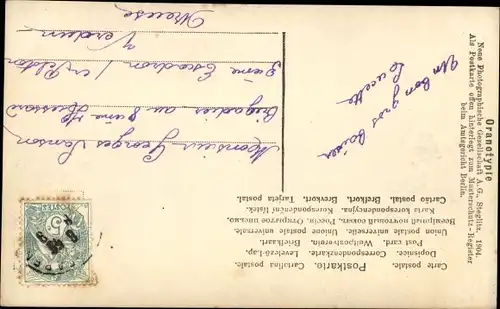 Oranotypie
Neue Photographische Gesellschaft A. G., Steglitz, 1904.
Als Postkarte offen hinterlegt zum Musterschutz-Register
beim Amtsgericht Berlin.
Carte postale. Postkarte. Cartolina postale.
Dopisnice. Correspondenzkarte. Levelező-Lap.
Post card. Weltpostverein. Briefkaart.
Union postale universelle. Unione postale universale.
Karta korespondencyjna. Korespondenční lístek.
Cartão postal. Brefkort. Brevkort. Tarjeta postal.
Un bon
gros baiser
Lucette
Monsieur Georges
Brigadier au
Escadron
Verdun
Meuse
POSTES
5